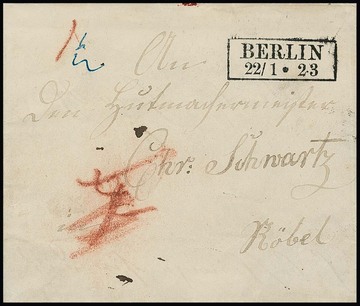 An
BERLIN
22/1 • 2-3
Den Hutmachermeister
Chr: Schwartz
Röbel